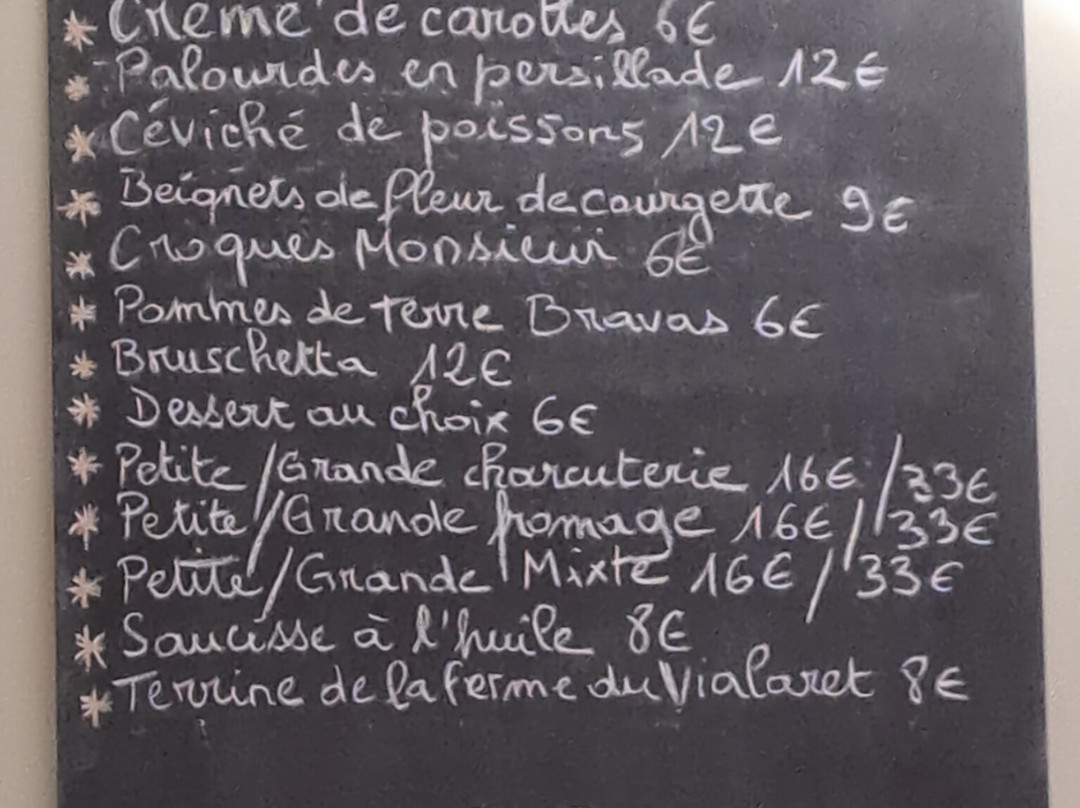 * Crème de carottes 6€
* Palourdes en persillade 12€
* Céviché de poissons 12€
* Beignets de fleur de courgette 9€
* Croques Monsieur 6€
* Pommes de terre Bravas 6€
* Bruschetta 12€
* Dessert au choix 6€
* Petite/Grande charcuterie 16€/33€
* Petite/Grande fromage 16€/33€
* Petite/Grande Mixte 16€/33€
* Saucisse à l'huile 8€
* Terrine de la ferme du Vialaret 8€